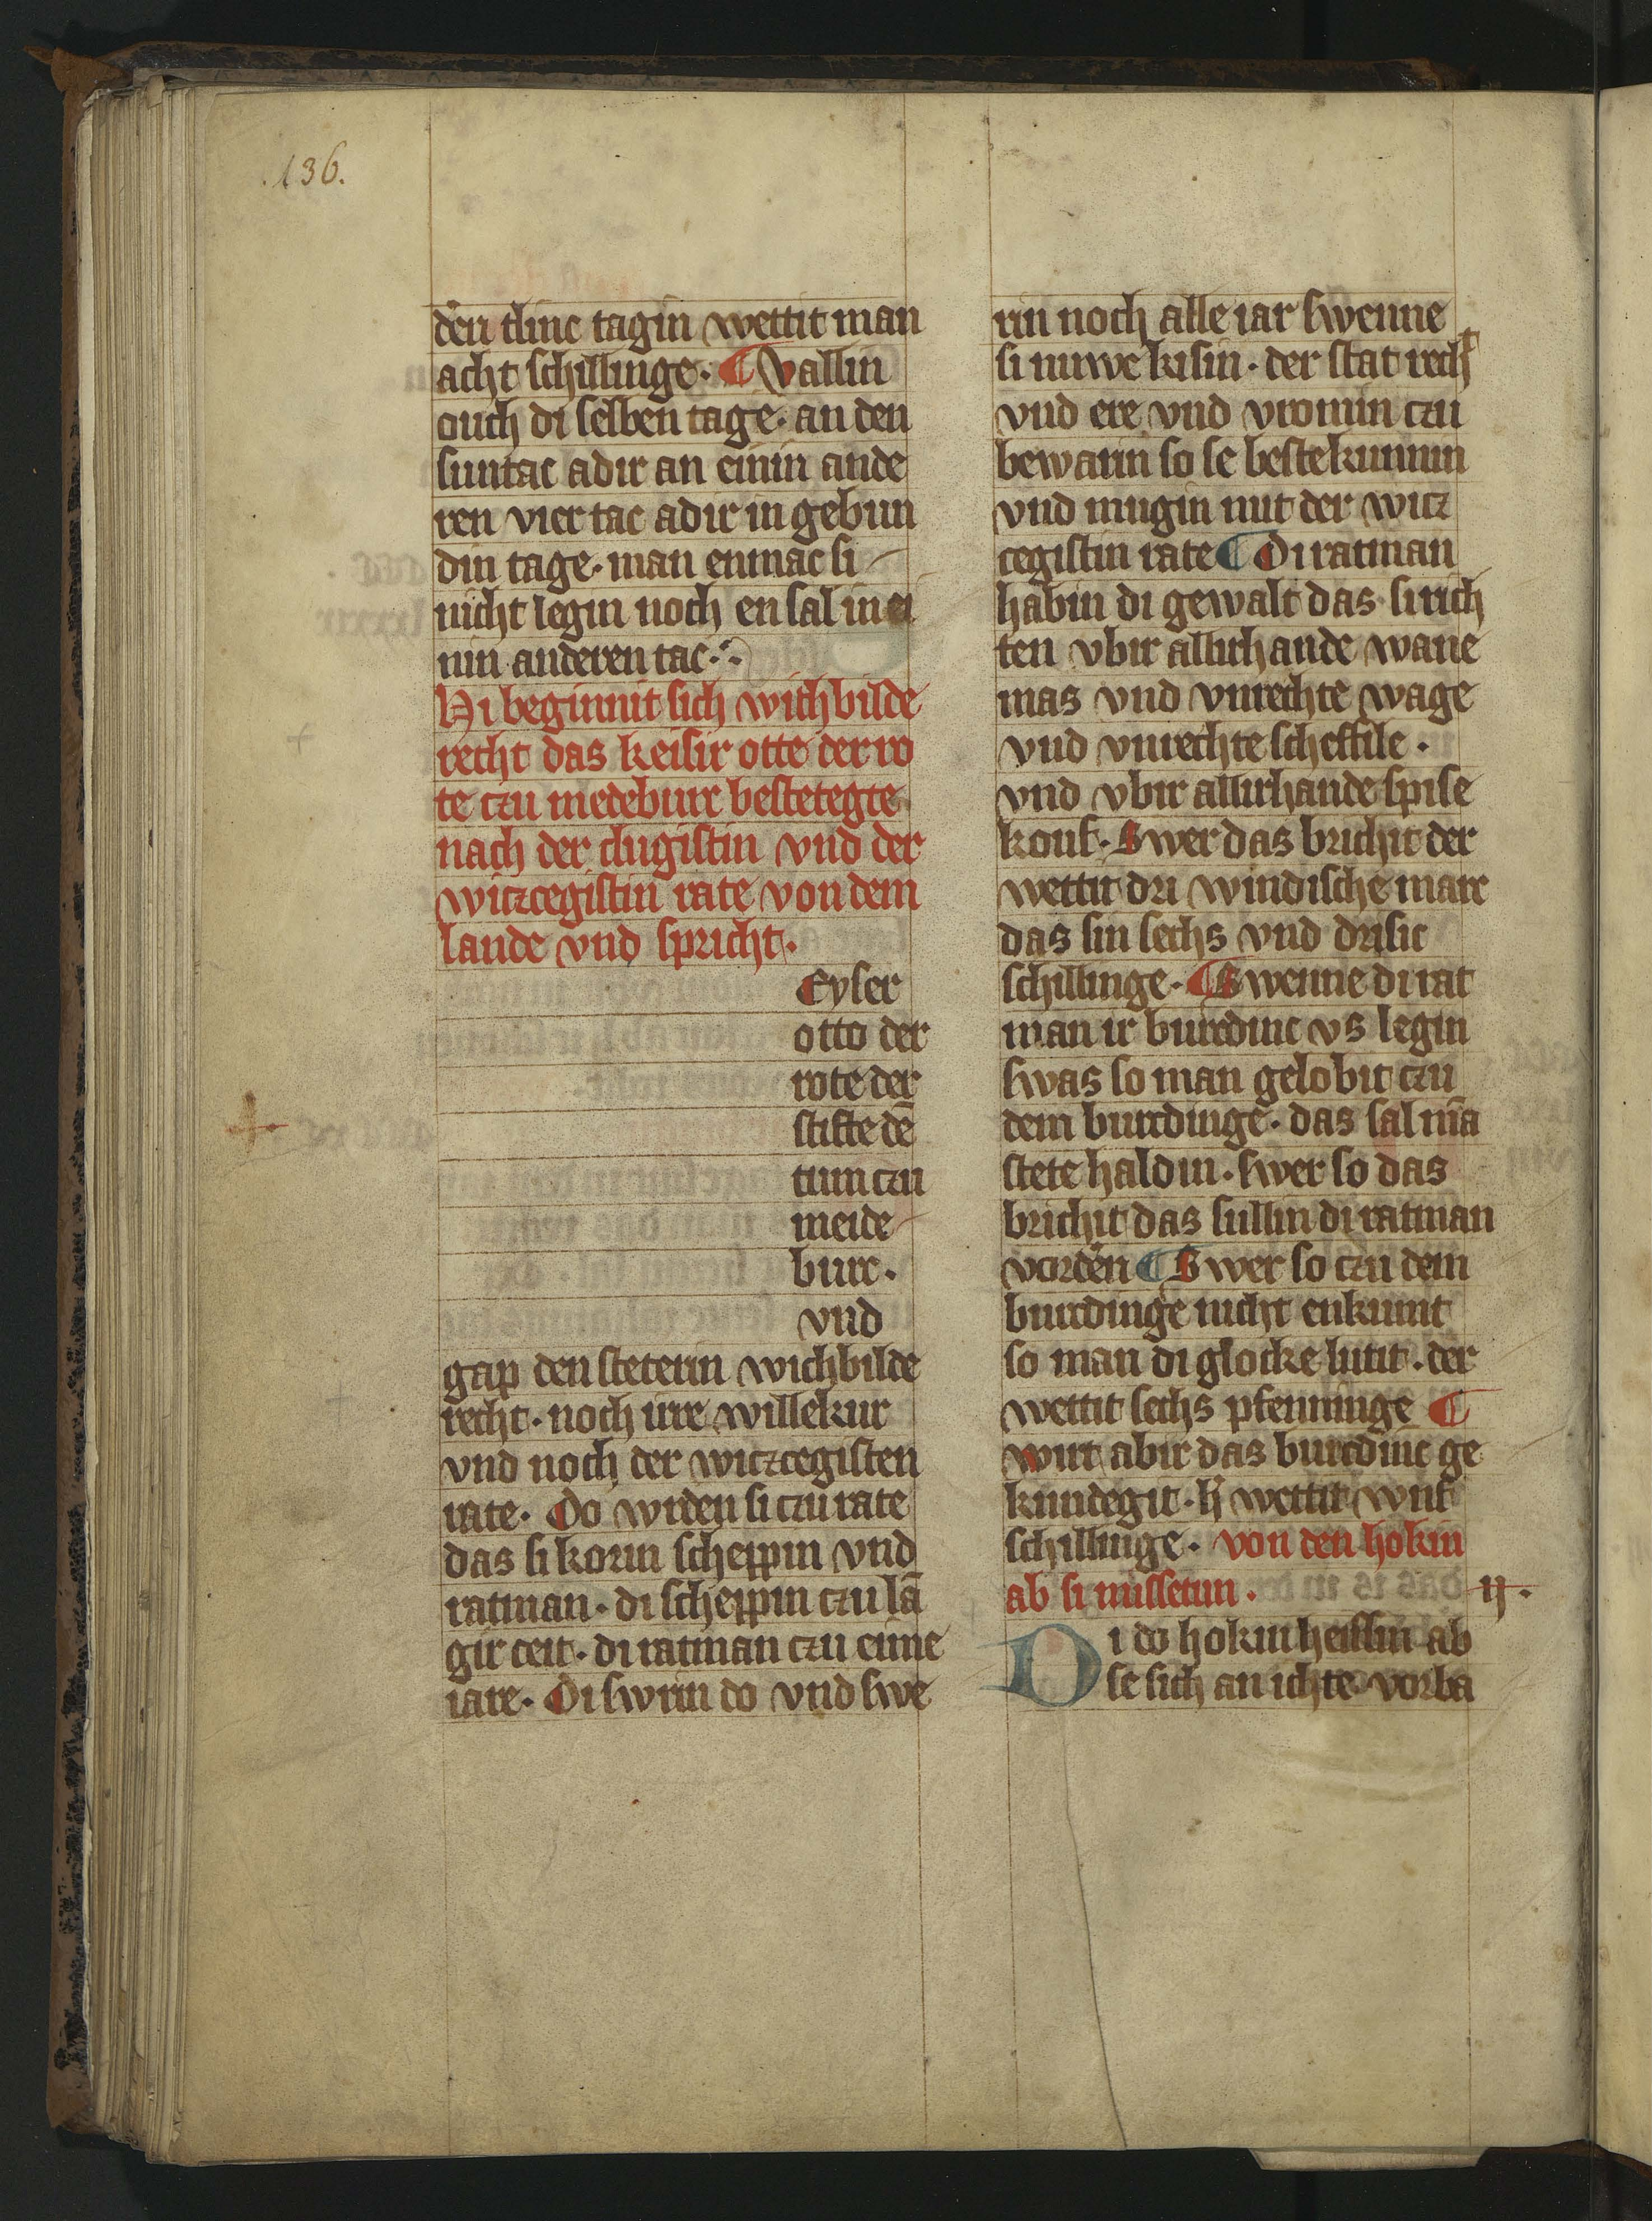 .136.
den tlinc tagin wettit man
acht schillinge. ¶ Vallin
ouch di selben tage. an den
suntac adir an einin ande
ren viertac adir in gebun
din tage. man enmac si
nicht legin noch en sal in ei
nin anderen tac.
Hi beginnit sich wichbilde
recht das keisir otte der ro
te czu medeburc bestetegte
nach der clugistin vnd der
witzcegistin rate von dem
lande vnd spricht.
Eyser
otto der
rote der
stifte dē
tum czu
meide
burc.
vnd
gap den stetenn wichbilde
recht. noch irre willekur
vnd noch der witzcegisten
rate. Do wrden si czu rate
das si korin scheppin vnd
ratman. di scheppin czu lā
gir ceit. di ratman czu eime
iare. Di swrin do vnd swe
rin noch alle iar swenne
si nuwe kisin. der stat rech
vnd ere vnd vromin czu
bewarin so se beste kunnin
vnd mugin mit der witz
cegistin rate ¶ Di ratman
habin di gewalt das si rich
ten vbir allirhande wane
mas vnd vnrechte wage
vnd vnrechte scheffile.
vnd vbir allirhande spise
kouf. Swer das brichit der
wettit dri windische marc
das sin sechs vnd drisic
schillinge. ¶ Swenne di rat
man ir burdinc vs legin
swas so man gelobit czu
dem burdinge. das sal mā
stete haldin. swer so das
brichit das sullin di ratman
vorden ¶ Swer so czu dem
burdinge nicht enkumt
so man di glocke lutit. der
wettit sechs pfenninge ¶
wirt abir das burdinc ge
kundegit. h' wettit wnf
schillinge. von den hokin
ab si missetun. ij.
Di do hokin heissin ab
se sich an ichte vorba